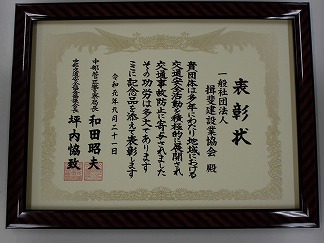 表彰状
一般社団法人
揖斐建設業協会 殿
貴団体は多年にわたり地域における
交通安全活動を積極的に展開され
交通事故防止に寄与されました
その功労は多大であります
ここに記念品を添えて表彰します
令和元年九月二十一日
中部管区警察局長 和田昭夫
坪内恊致